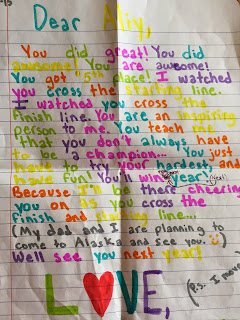 Dear Aliy,
You did great! You did
awesome! You are awesome!
You got "5th place! I watched
you cross the starting line.
I watched you cross the
finish line. You are an inspiring
person to me. You teach me
that you don't always have
to be a champion... You just
have to try your hardest, and
have fun! You'll win year!
Because I'll be there cheering
you on as you cross the
finish and starting line...
(My dad and I are planning to
come to Alaska and see you.
We'll see you next year!
LOVE,
(p.s. I